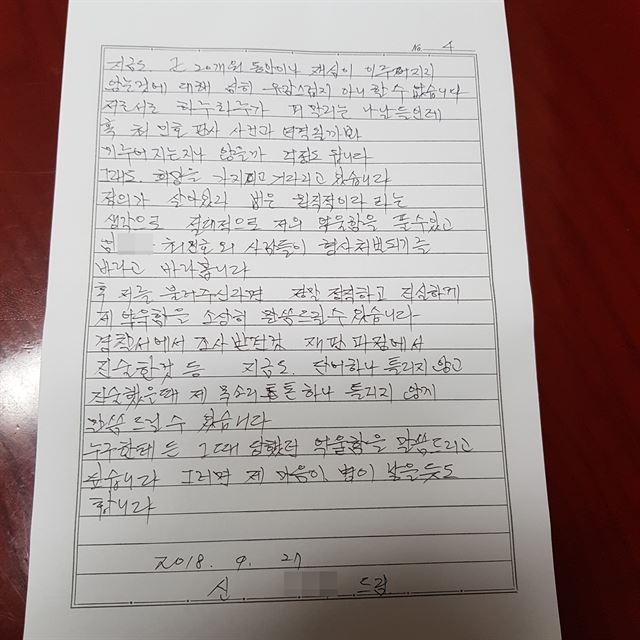 No. 4
지금도 근 20개월 동안이나 재심이 이루어지지
않는것에 대해 심히 유감스럽지 아니할 수 없습니다
저로서는 하루하루가 피말리는 나날들인데
혹 최 인호 판사 사건과 연격될가봐
이루어지는지나 않을가 걱정도 됩니다
그래도 희망을 가지고 기다리고 있습니다
정의가 살아있고 법은 원칙적이라 라는
생각으로 절대적으로 저의 억울함을 풀수있고
최인호 외 사람들이 형사처벌되기를
바라고 바라봅니다
혹 저를 불러주신다면 정말 정확하고 진실하게
제 억울함을 소상히 말씀드릴수 있습니다
경찰서에서 조사 받던것 재판 과정에서
진술한것 등 지금도 단어하나 틀리지 않고
진술했을때 제 목소리 톤 하나 틀리지 않게
말씀 드릴 수 있습니다
누구한테 든 그때 당했던 억울함을 말씀드리고
싶습니다 그러면 제 마음이 병이 낳을듯도
합니다
2018. 9. 27
신 드림